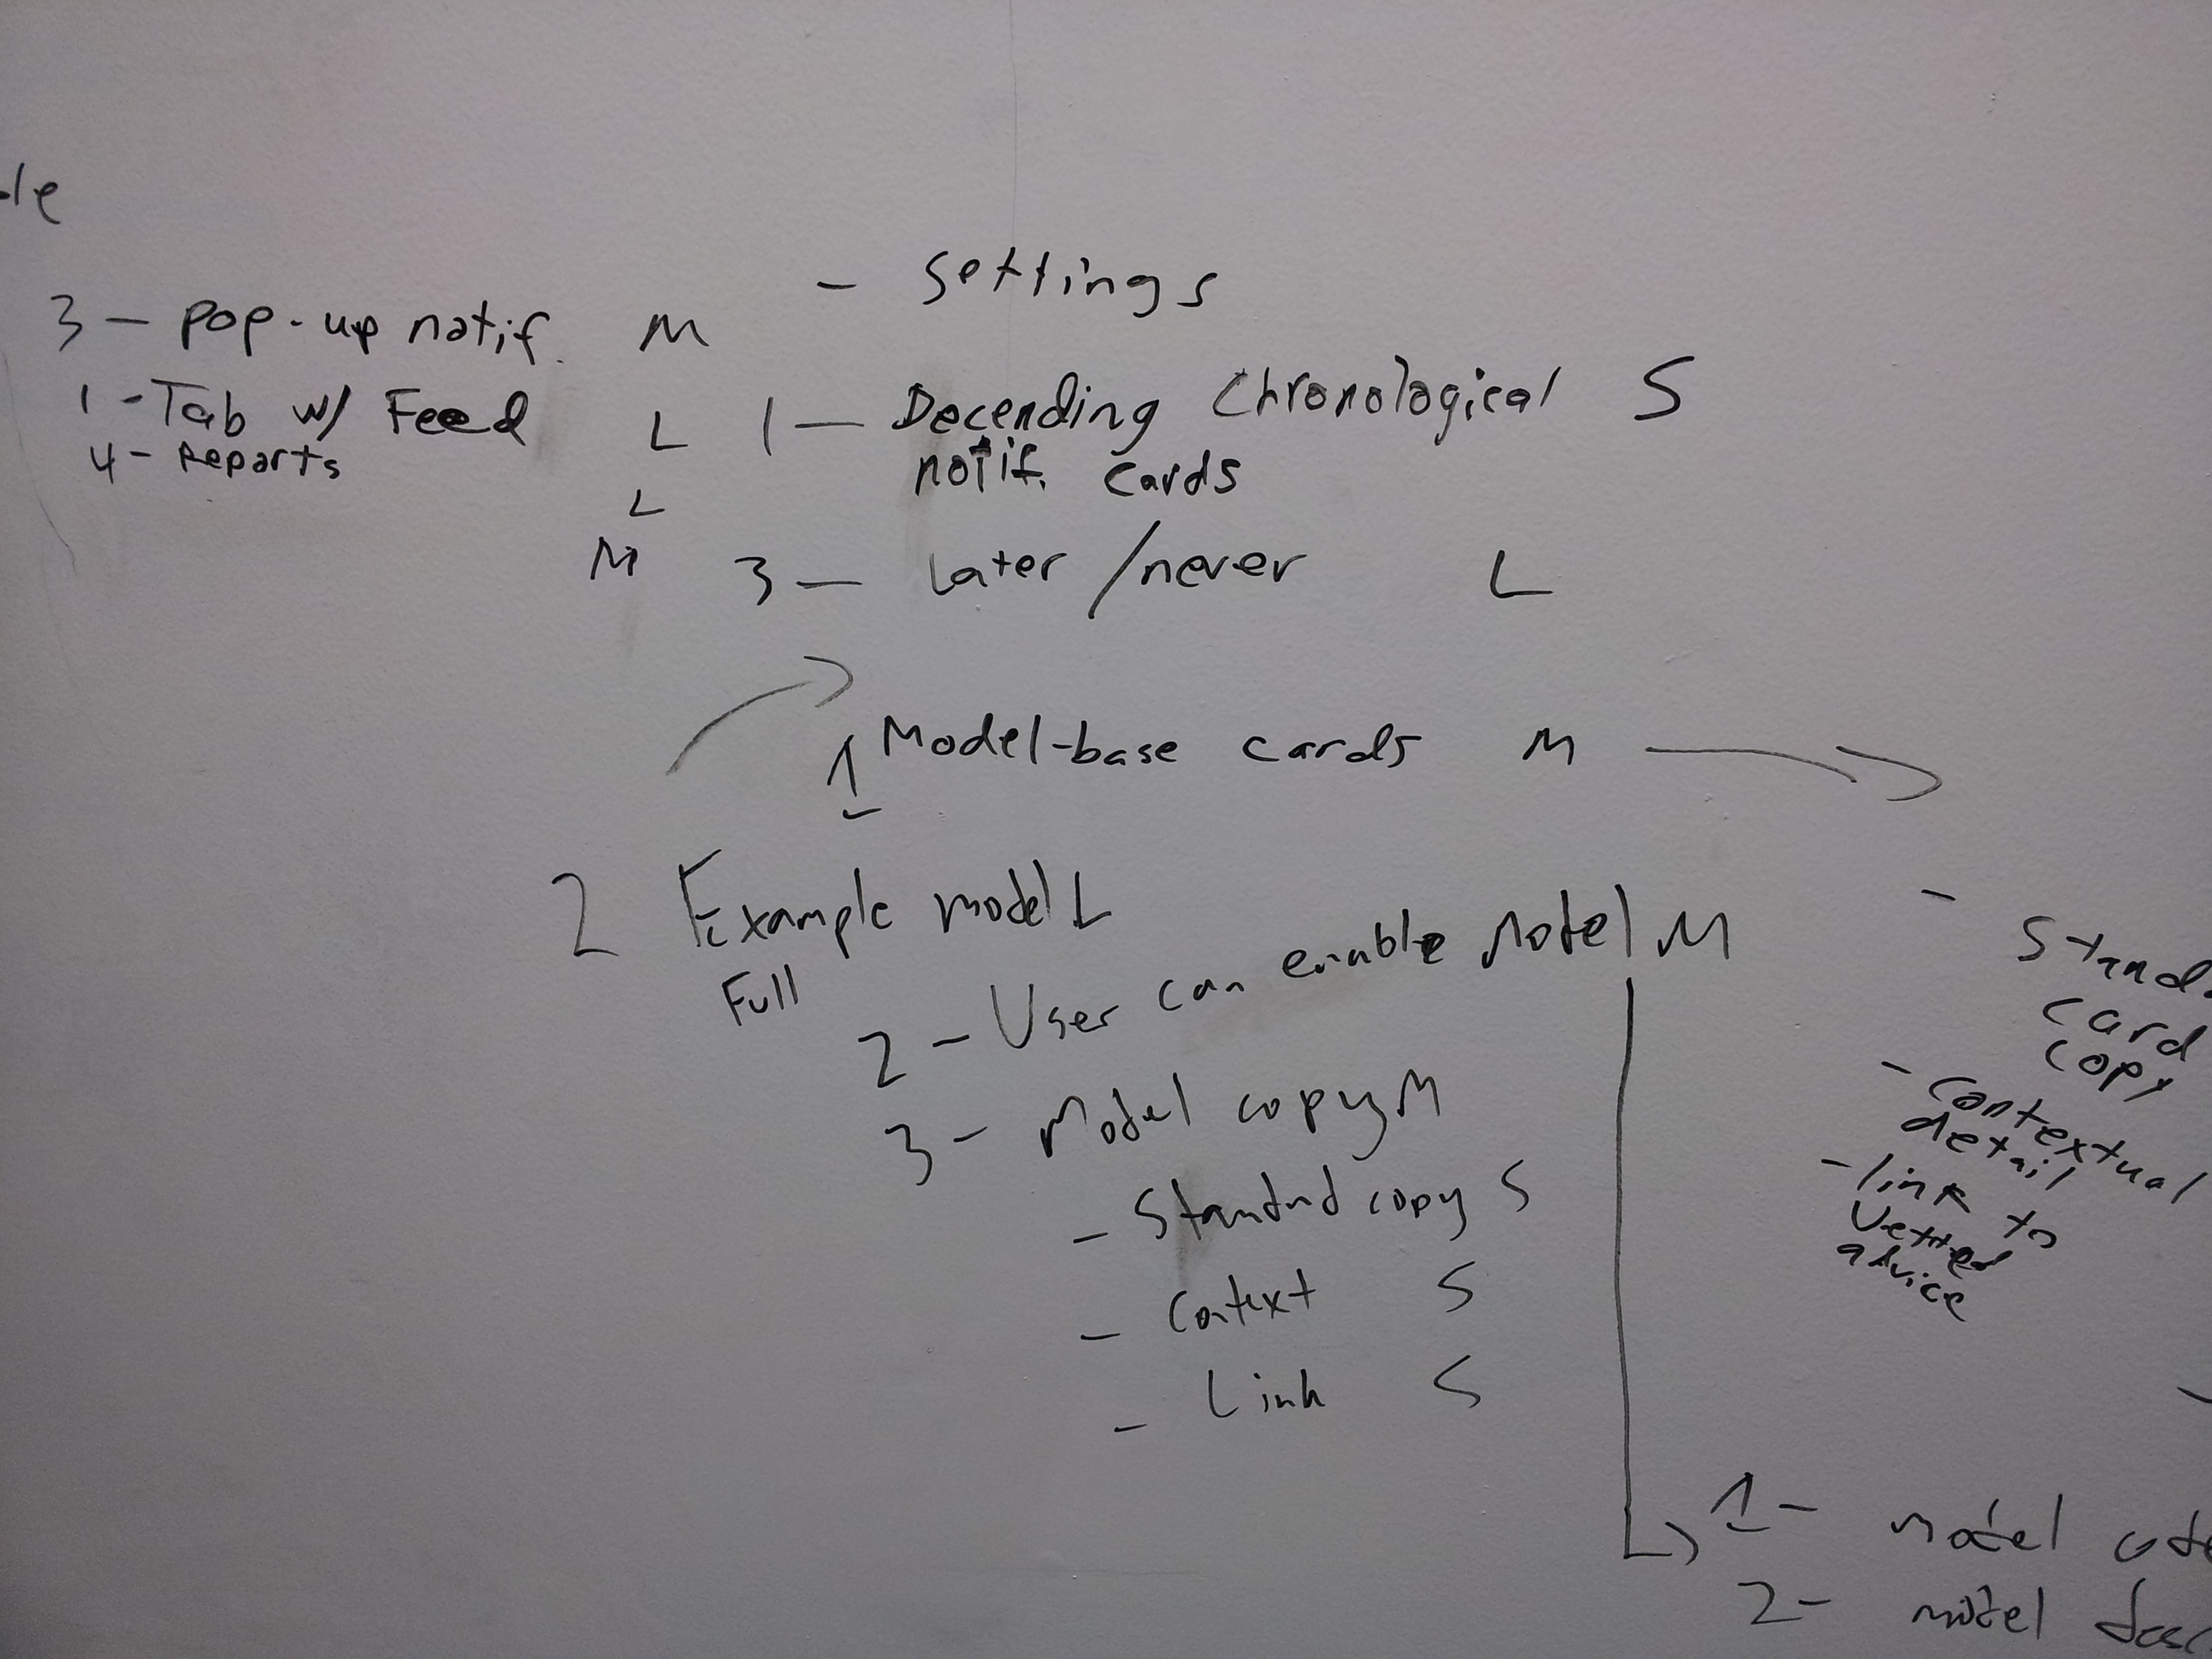 - settings
3 - pop-up notif. M
1 - Tab w/ Feed L
4 - Reports
L
M
1 - Decending Chronological S
notif. cards
3 - Later / never L
1 Model-base cards M
2 Example model L
Full
2 - User can enable Model M
3 - Model copy M
- Standard copy S
- Context S
- Link S
- Stand
card
copy
- contextual
detail
- link to
vetted
advice
1 - model
2 - model desc